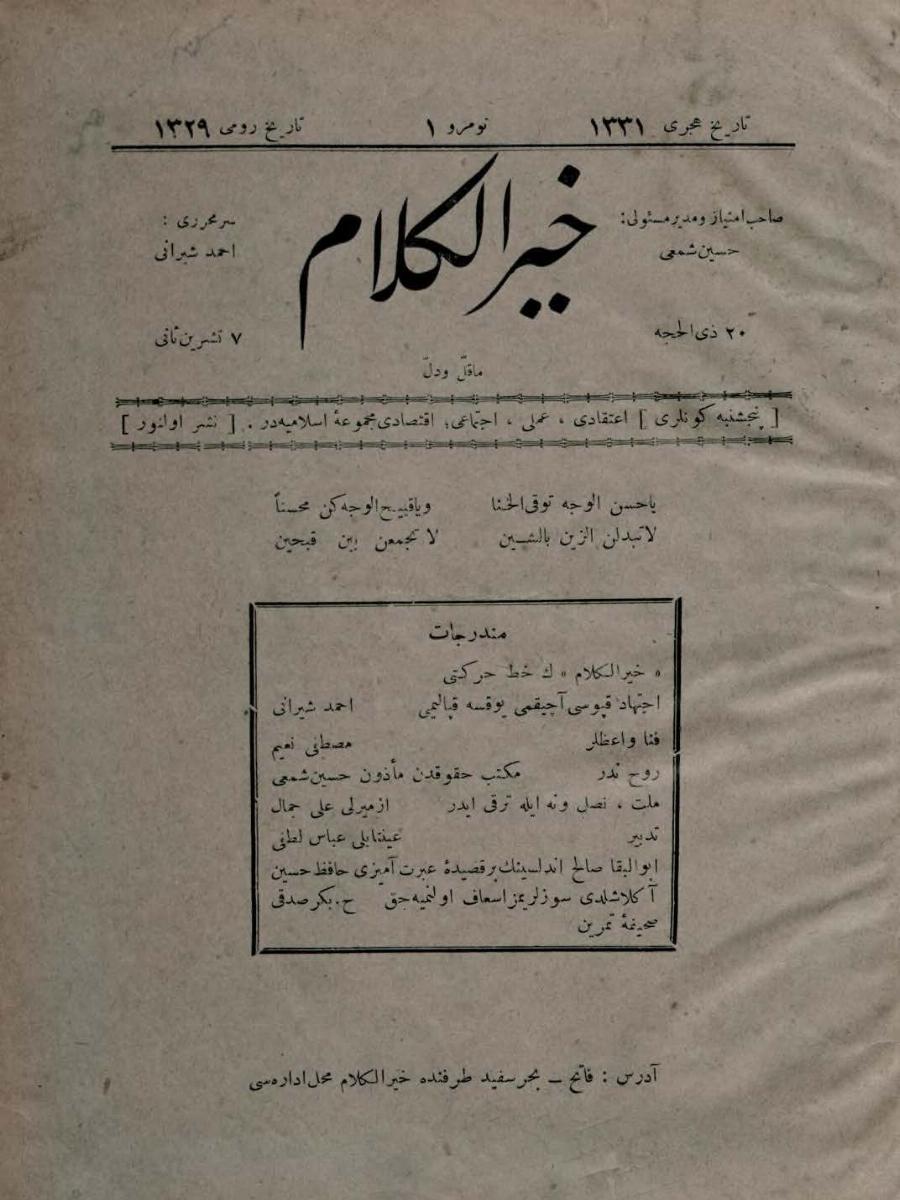 تاریخ هجری ۱۳۳۱ نومرو ۱ تاریخ رومی ۱۳۲۹
خیر الکلام
صاحب امتیاز ومدیر مسئولی:
حسین شمعی
سر محرری :
احمد شیرانی
۲۰ ذی الحجه
۷ تشرین ثانی
ماقلّ ودلّ
[ پنجشنبه کونلری ] اعتقادی ، عملی ، اجتماعی؛ اقتصادی مجموعهٔ اسلامیه در . [ نشر اولنور ]
یاحسن الوجه توقی الخنا ویاقبیح الوجه کن محسناً
لاتبدلن الزین بالشین لا تجمعن بین قبحین
مندرجات
« خیر الکلام » ك خط حرکتی
اجتهاد قپوسی آچیقمی یوقسه قپالیمی احمد شیرانی
فنا واعظلر مصطفی نعیم
روح ندر مکتب حقوقدن مأذون حسین شمعی
ملت ، نصل ونه ایله ترقی ایدر ازمیرلی علی جمال
تدبیر عینتابلی عباس لطفی
ابوالبقا صالح اندلسینك بر قصیدهٔ عبرت آمیزی حافظ حسین
آکلاشلدی سوزلریمز اسعاف اولنمیه جق ح . بکر صدقی
صحیفهٔ تمرین
آدرس : فاتح ـ بحر سفید طرفنده خیر الکلام محل اداره سی